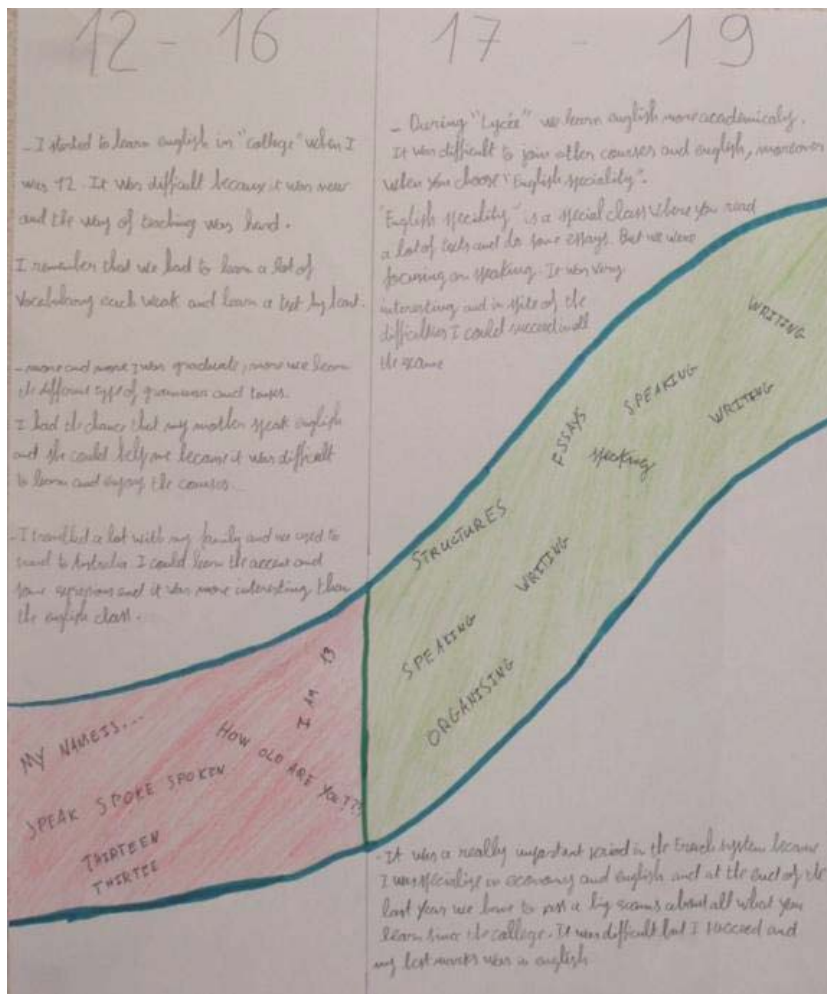 12 - 16
- I started to learn english in "college" when I
was 12. It was difficult because it was new
and the way of teaching was hard.
I remember that we had to learn a lot of
vocabulary each weak and learn a text by heart.
- more and more I was graduate, more we learn
the different type of grammar and tenses.
I had the chance that my mother speak english
and she could help me because it was difficult
to learn and enjoy the courses.
- I travelled a lot with my family and we used to
travel to Australia I could learn the accent and
some expressions and it was more interesting than
the english class.
MY NAME IS...
SPEAK SPOKE SPOKEN
THIRTEEN
THIRTIE
HOW OLD ARE YOU???
I AM 13
17 - 19
- During "Lycée" we learn english more academicaly.
It was difficult to join other courses and english, moreover
when you choose "English speciality".
"English specility" is a special class where you read
a lot of texts and do some essays. But we were
focusing on speaking. It was very
interesting and in spite of the
difficulties I could succeed in all
the
STRUCTURES
ESSAYS
SPEAKING
WRITING
speaking
WRITING
WRITING
SPEAKING
ORGANISING
- It was a really important period in the French system because
I was specialise in economy and english and at the end of the
last year we have to pass a big exams about all what you
learn since the college. It was difficult but I succeed and
my best marks was in english